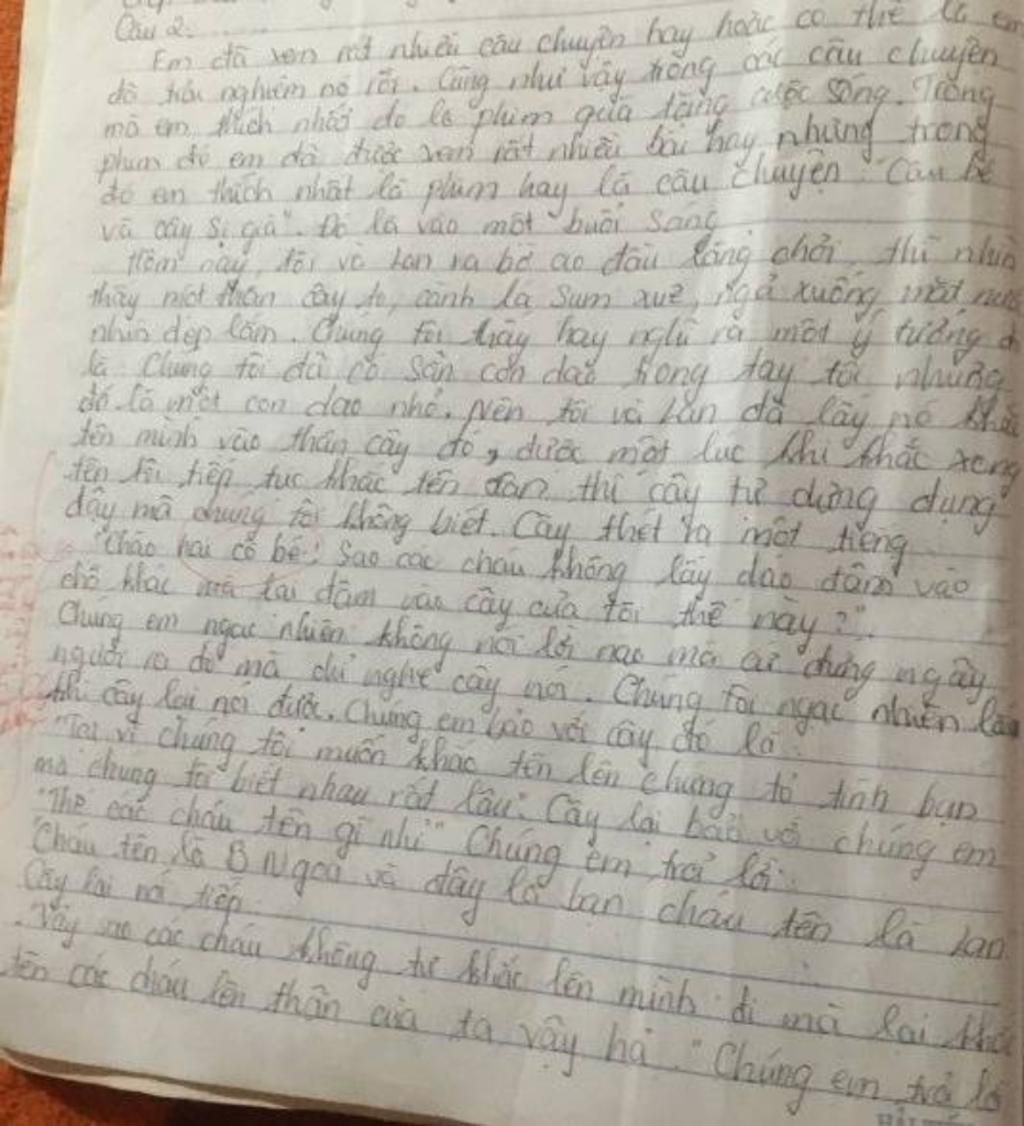 Câu 2:
Em đã xem rất nhiều câu chuyện hay hoặc có thể là em
đã trải nghiệm nó rồi. Cũng như vậy trong các câu chuyện
mà em thích nhất đó là phim quà tặng cuộc sống. Trong
phim đó em đã được xem rất nhiều bài hay nhưng trong
đó em thích nhất là phim hay là câu chuyện: "Cậu bé
và cây si già". Đó là vào một buổi sáng
Hôm nay, tôi và Lan ra bờ ao đầu làng chơi, thì nhìn
thấy một thân cây to, cành lá sum xuê, ngả xuống mặt nước
nhìn đẹp lắm. Chúng tôi hãy nghĩ ra một ý tưởng
là Chúng tôi đã có sẵn con dao trong tay tôi nhưng
đó là một con dao nhỏ. Nên tôi và Lan đã lấy nó khắc
tên mình vào thân cây đó, được một lúc khi khắc xong
tên tôi tiếp tục khắc tên Lan thì cây tự dưng dựng
dậy mà chúng tôi không biết. Cây thét ra một tiếng
"Chào hai cô bé! Sao các cháu không lấy dao đâm vào
chỗ khác mà lại đâm vào cây của tôi thế này?".
Chúng em ngạc nhiên không nói lời nào mà cứ đứng ngây
người ra đó mà chỉ nghe cây nói. Chúng tôi ngạc nhiên lắm
khi cây lại nói được. Chúng em bảo với cây đó là:
"Tại vì chúng tôi muốn khắc tên lên chứng tỏ tình bạn
mà chúng tôi biết nhau rất lâu". Cây lại bảo với chúng em
"Thế các cháu tên gì nhỉ" Chúng em trả lời:
"Cháu tên là B Ngọc và đây là bạn cháu tên là Lan
Cây lại nói tiếp:
- Vậy sao các cháu không tự khắc lên mình đi mà lại khắc
tên các cháu lên thân của ta vậy hả. "Chúng em trả lời